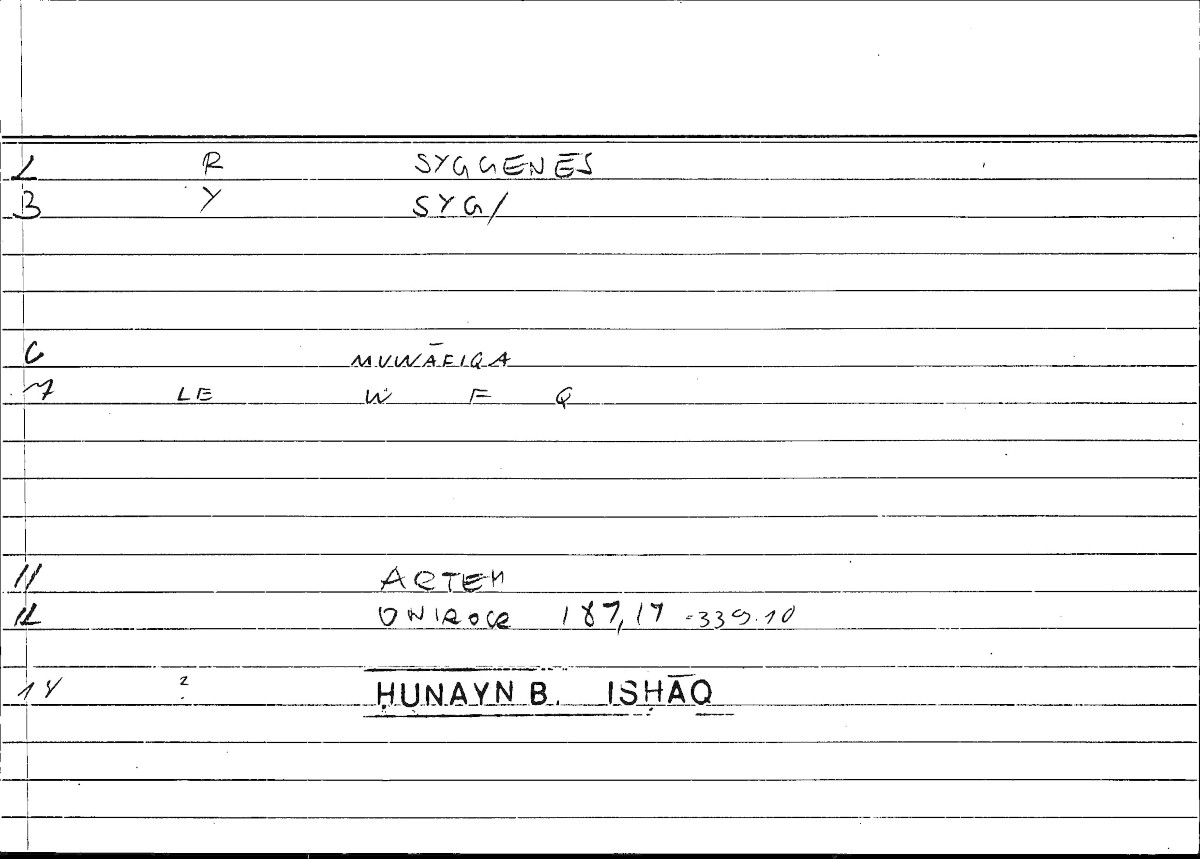 2 R SYGGENĒS
3 Y SYG/
6 MUWĀFIQA
7 LE W F Q
11 ARTEM
12 ONIROCR 187,17 = 339.10
14 2 ḤUNAYN B. ISḤĀQ